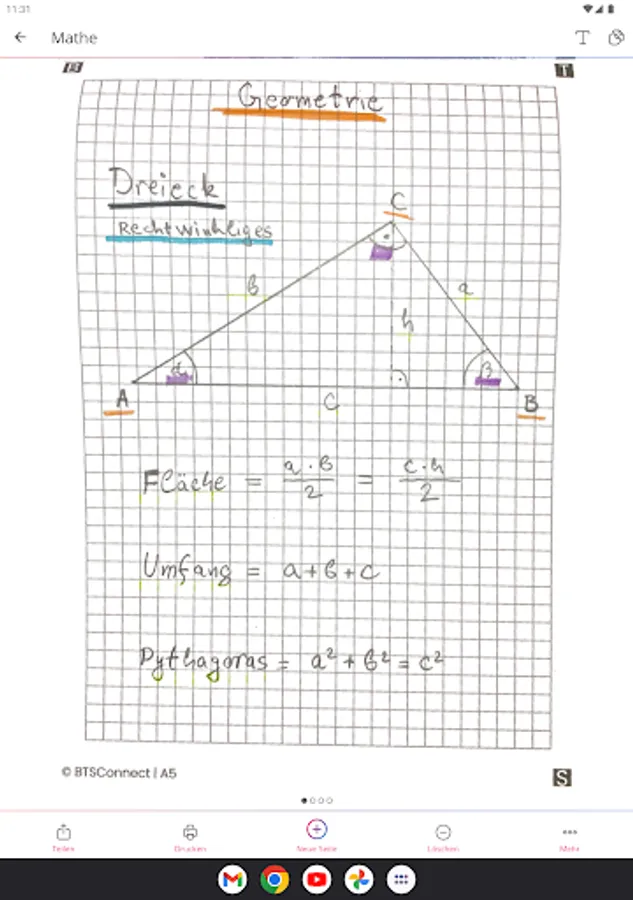 11:31
Mathe
T
Geometrie
Dreieck
Rechtwinkliges
C
b
a
h
α
β
A
C
B
Fläche = a·b/2 = c·h/2
Umfang = a+b+c
Pythagoras = a² + b² = c²
© BTSConnect | A5
S
Teilen
Drucken
Neue Seite
Löschen
Mehr